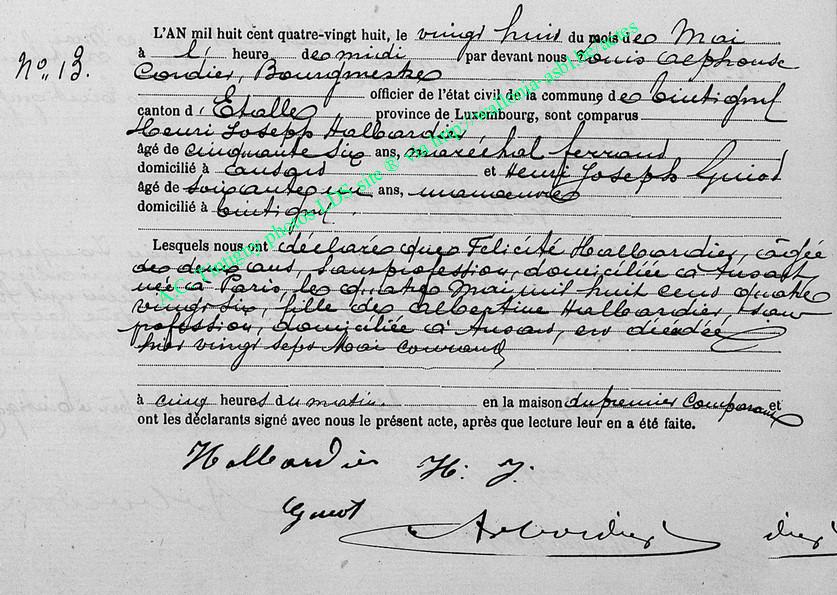 L'AN mil huit cent quatre-vingt huit, le vingt huit du mois de Mai
N° 13.
à l' heure de midi par devant nous Louis Alphonse
Cordier, Bourgmestre
officier de l'état civil de la commune de Tintigny
canton d' Etalle province de Luxembourg, sont comparus
Henri Joseph Halbardier
âgé de cinquante six ans, maréchal ferrant
domicilié à Ansart et Henri Joseph Guiot
âgé de soixante un ans, manœuvre
domicilié à Tintigny.
Lesquels nous ont déclaré que Félicité Halbardier, âgée
de deux ans, sans profession, domiciliée à Ansart,
née à Paris, le quatre Mai mil huit cent quatre
vingt six, fille de Albertine Halbardier, sans
profession, domiciliée à Ansart, est décédée
hier vingt sept Mai courant,
à cinq heures du matin en la maison du premier Comparant et
ont les déclarants signé avec nous le présent acte, après que lecture leur en a été faite.
Halbardier H. J.
Guiot
A.C. Tintigny photos LDS, site ® via http://wallonia-asbl.be/actes